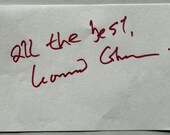 all the best,
Leonard Cohen